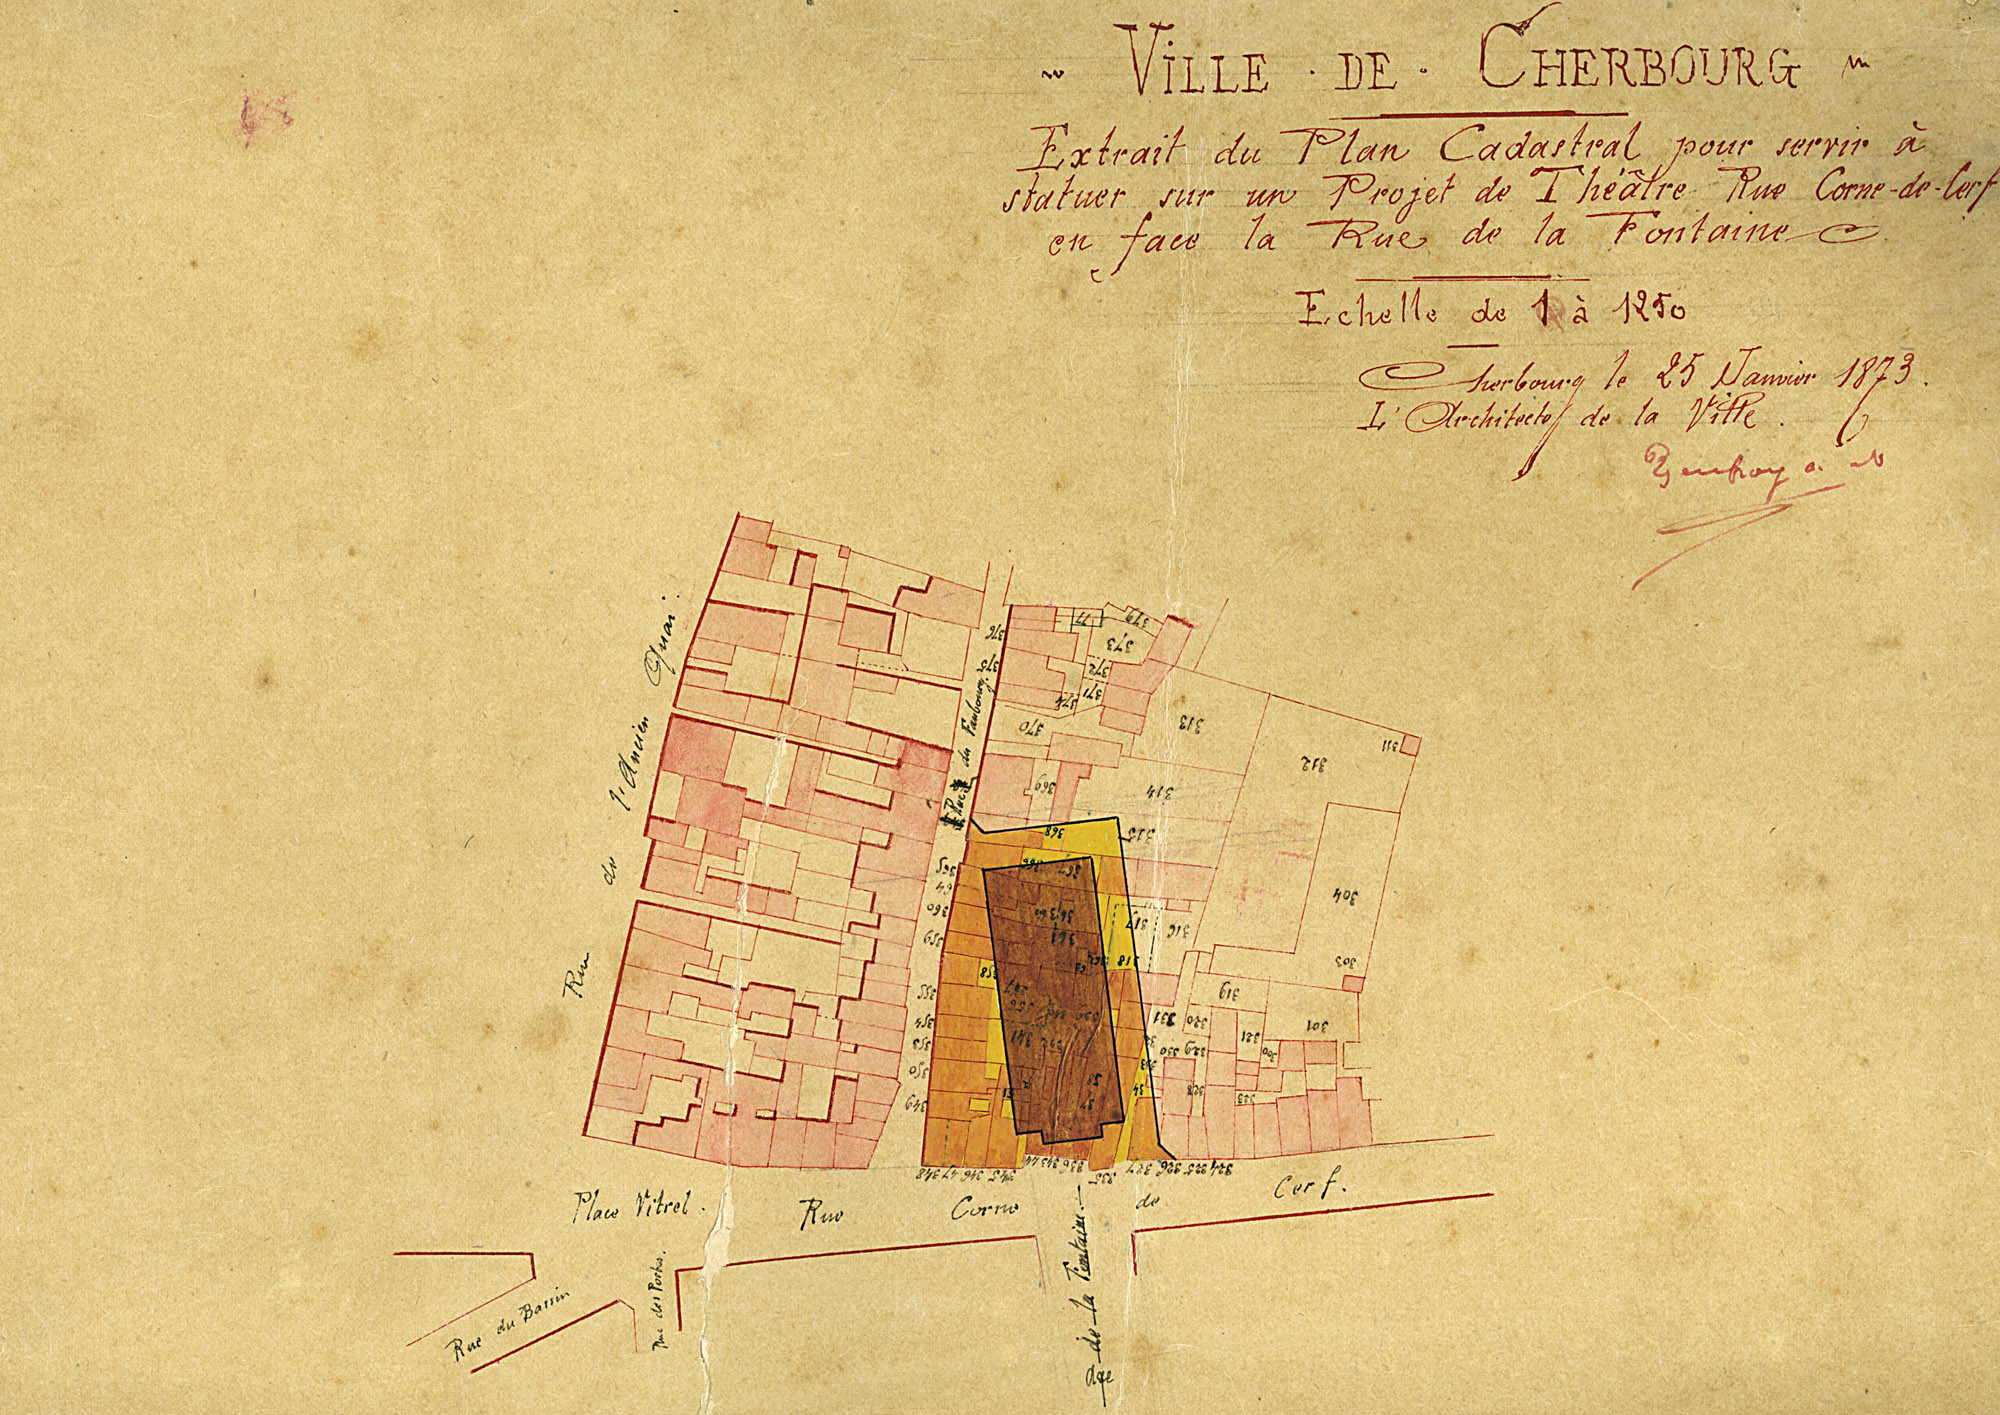 VILLE · DE · CHERBOURG
Extrait du Plan Cadastral pour servir à
statuer sur un Projet de Théâtre Rue Corne-de-Cerf
en face la Rue de la Fontaine
Echelle de 1 à 1250
Cherbourg le 25 Janvier 1873.
L'Architecte de la Ville.
Rue de l'Ancien Quai.
Rue du Faubourg
376
375
77
379
373
372
371
374
370
369
313
312
311
314
315
368
366
367
365
64
360
359
355
354
353
350
349
358
361
317
316
318
304
303
319
301
331
320
321
330
329
328
300
333
34
37
348 47 346 345 44 343 336 335 327 326 325 324
Place Vitrel.
Rue Corne de Cerf.
Rue du Bassin
Rue des Portes.
de la Fontaine.